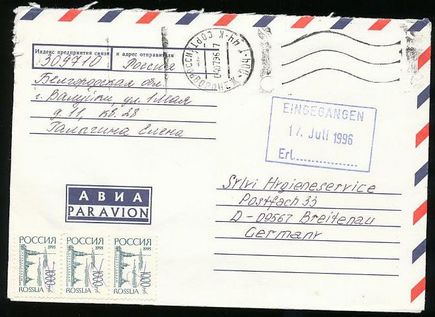 Индекс предприятия связи и адрес отправителя
309710 Россия
Белгородская обл.
г. Валуйки ул. 1 Мая
д. 11, кв. 28
Галыгина Елена
EINGEGANGEN
17. Juli 1996
Erl.
АВИА
PAR AVION
Srlvi Hrgieneservice
Postfach 33
D-09567 Breitenau
Germany
РОССИЯ 1995
1000
ROSSIJA
РОССИЯ 1995
1000
ROSSIJA
РОССИЯ 1995
1000
ROSSIJA